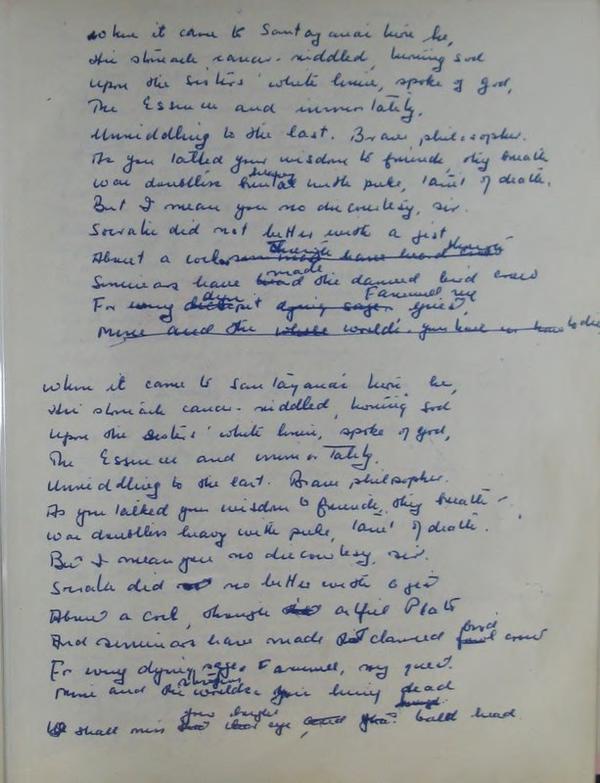 When it came to Santayana's turn he,
His stomach cancer-riddled, honing God
Upon the Sisters' white linen, spoke of God,
The Essence and immortality.
Unriddling to the last. Brave philosopher.
As you talked your wisdom to friends, thy breath
was doubtless heavy with puke, 'taint' of death.
But I mean you no discourtesy, sir.
Socrates did not better with a jest
About a cock
Seminars have made the damned bird crow
For
Mine and the whole world's. you have to die
When it came to Santayana's turn he,
His stomach cancer-riddled, honing God
Upon the Sisters' white linen, spoke of God,
The Essence and immortality.
Unriddling to the last. Brave philosopher.
As you talked your wisdom to friends, thy breath
was doubtless heavy with puke, 'taint' of death.
But I mean you no discourtesy, sir.
Socrates did no better with a jest
About a cock, though artful Plato
And seminars have made damned bird crow
For every dying sage. Farewell, my guest.
Mine and the world's. You being dead
shall miss your bright eye, bald head.